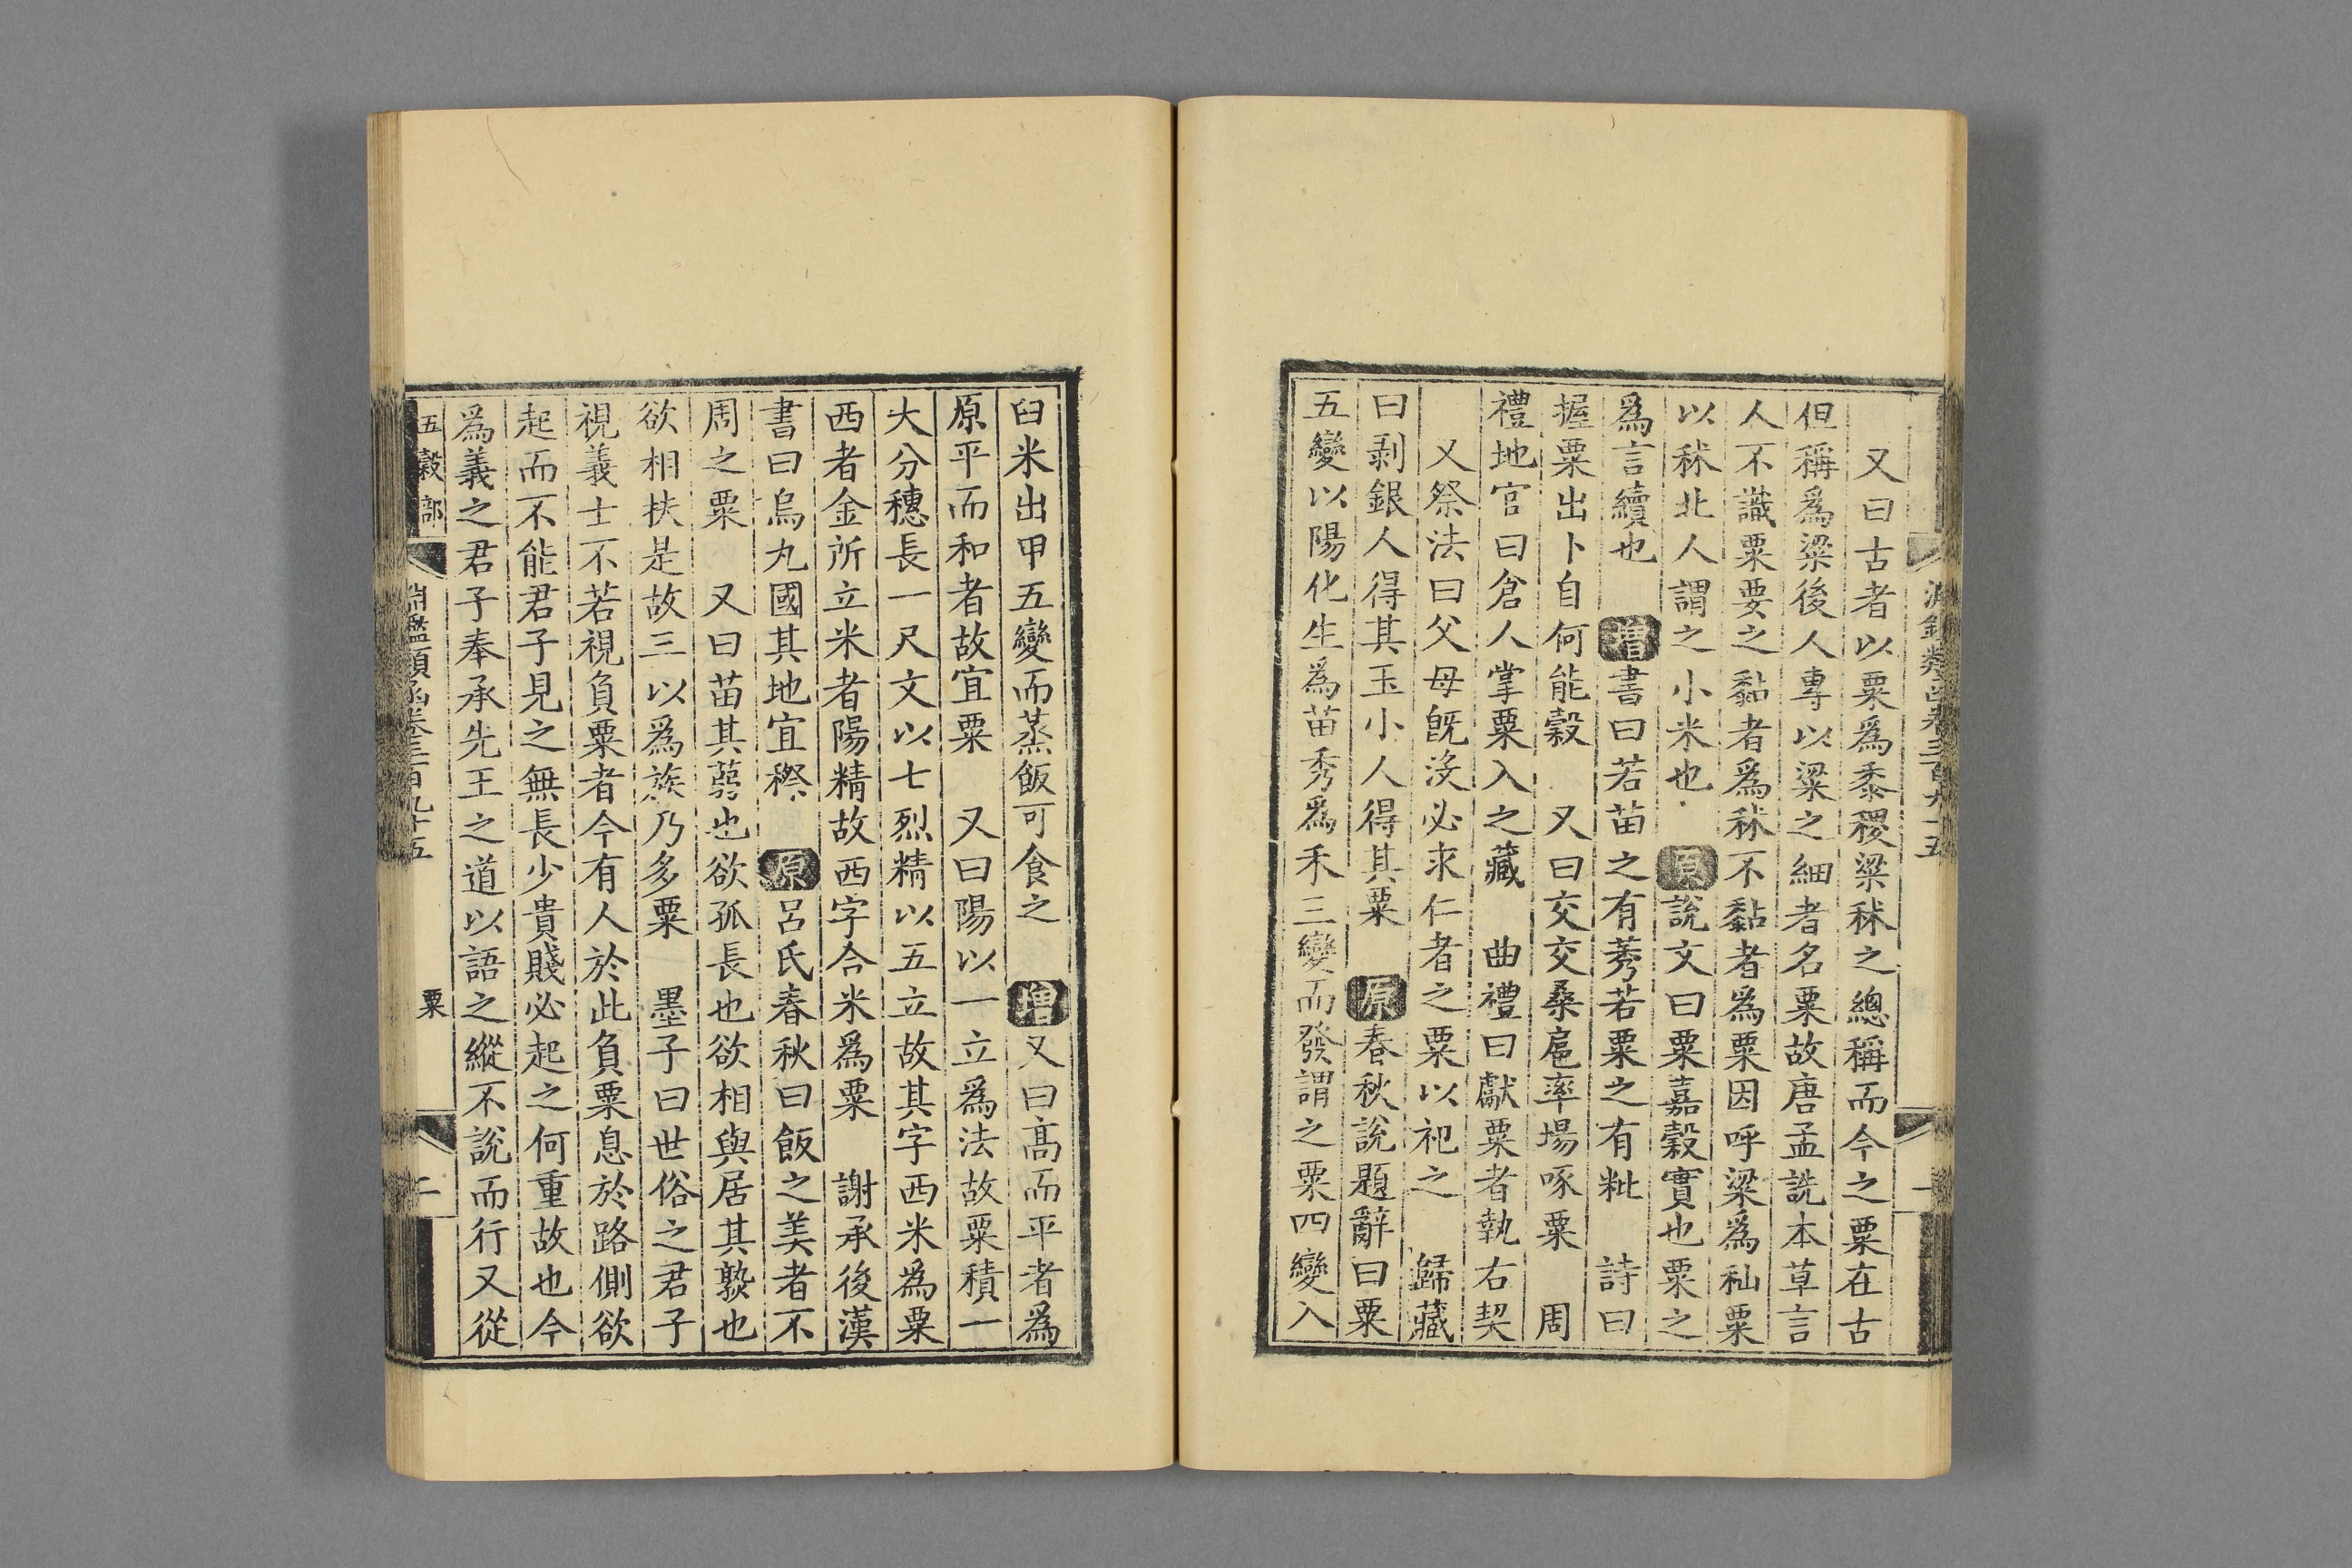 又曰古者以粟爲黍稷粱秫之總稱而今之粟在古
但稱爲粱後人專以粱之細者名粟故唐孟詵本草言
人不識粟要之黏者爲秫不黏者爲粟因呼粱爲秈粟
以秫北人謂之小米也 原說文曰粟嘉穀實也粟之
爲言續也 增書曰若苗之有莠若粟之有粃 詩曰
握粟出卜自何能穀 又曰交交桑扈率場啄粟 周
禮地官曰倉人掌粟入之藏 曲禮曰獻粟者執右契
又祭法曰父母旣沒必求仁者之粟以祀之 歸藏
曰剥銀人得其玉小人得其粟 原春秋說題辭曰粟
五變以陽化生爲苗秀爲禾三變而發謂之粟四變入
臼米出甲五變而蒸飯可食之 增又曰高而平者爲
原平而和者故宜粟 又曰陽以一立爲法故粟積一
大分穗長一尺文以七烈精以五立故其字西米爲粟
西者金所立米者陽精故西字合米爲粟 謝承後漢
書曰烏丸國其地宜穄 原呂氏春秋曰飯之美者不
周之粟 又曰苗其蒻也欲孤長也欲相與居其熟也
欲相扶是故三以爲族乃多粟 墨子曰世俗之君子
視義士不若視負粟者今有人於此負粟息於路側欲
起而不能君子見之無長少貴賤必起之何重故也今
爲義之君子奉承先王之道以語之縱不說而行又從
五穀部 淵鑑類函卷三百九十五 粟 二